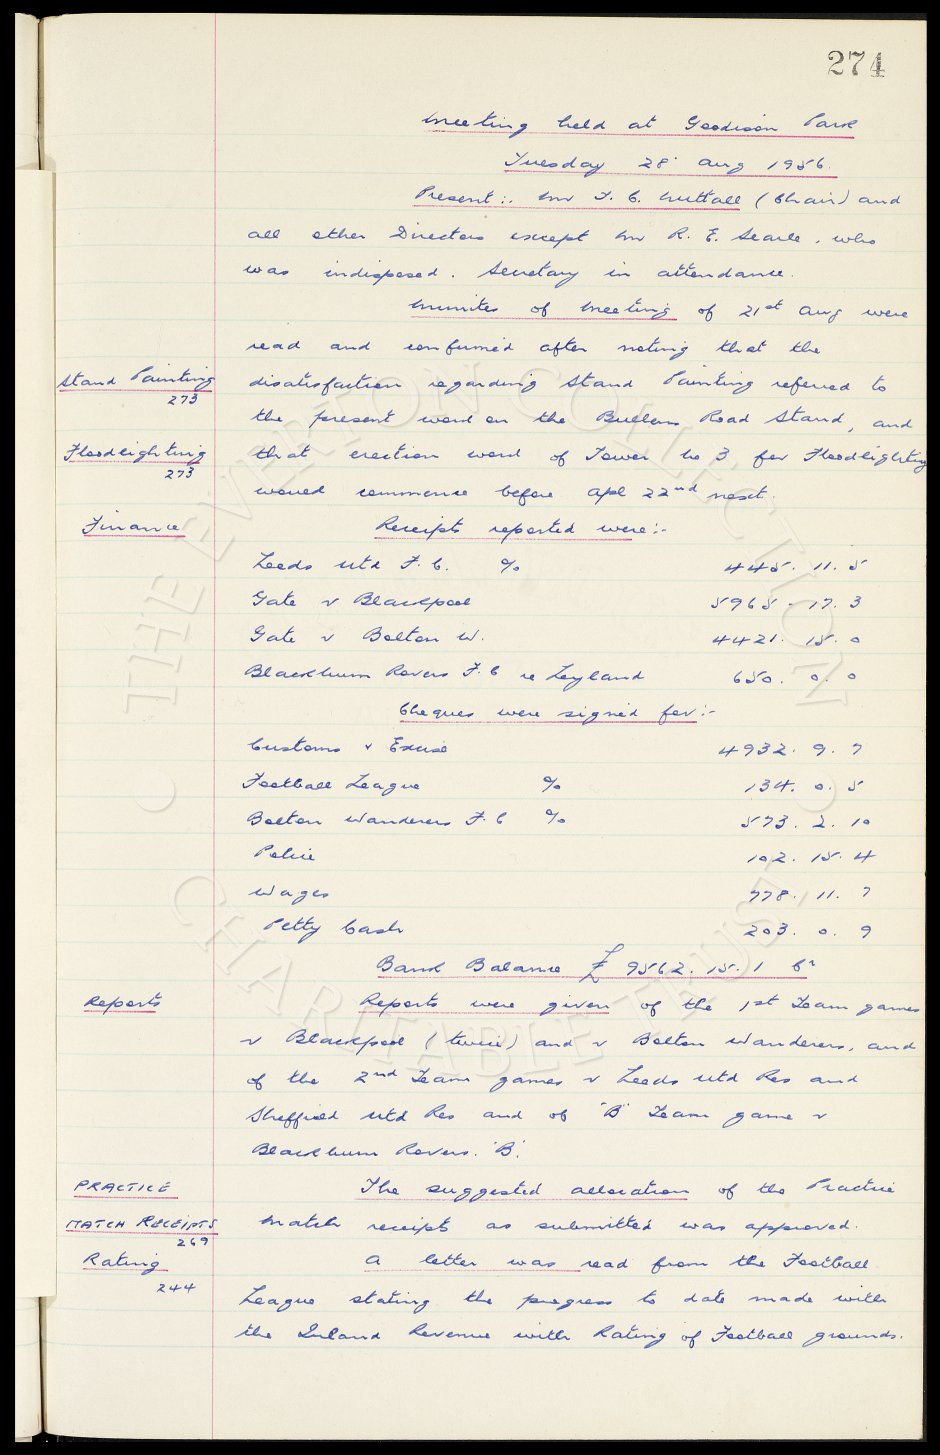 274
Meeting held at Goodison Park
Tuesday 28' Aug 1956.
Present:. Mr T. C. Nuttall (Chair) and
all other Directors except Mr R. E. Searle, who
was indisposed. Secretary in attendance.
Minutes of Meeting of 21st Aug were
read and confirmed after noting that the
Stand Painting 273
disatisfaction regarding Stand Painting referred to
the present work on the Bullens Road Stand, and
Floodlighting 273
that erection work of Tower No 3 for Floodlighting
would commence before Apl 22nd next.
Finance
Receipts reported were:-
Leeds Utd F.C. % 445. 11. 5
Gate v Blackpool 5965. 17. 3
Gate v Bolton W. 4421. 15. 0
Blackburn Rovers F.C re Leyland 650. 0. 0
Cheques were signed for:-
Customs & Excise 4932. 9. 7
Football League % 134. 0. 5
Bolton Wanderers F.C % 573. 2. 10
Police 102. 15. 4
Wages 778. 11. 7
Petty Cash 203. 0. 9
Bank Balance £ 9562. 15. 1 Cr
Reports
Reports were given of the 1st Team games
v Blackpool (twice) and v Bolton Wanderers, and
of the 2nd Team games v Leeds Utd Res and
Sheffield Utd Res and of 'B' Team game v
Blackburn Rovers. 'B'.
PRACTICE
The suggested allocation of the Practice
MATCH RECEIPTS 269
Match receipts as submitted was approved.
Rating 244
A letter was read from the Football
League stating the progress to date made with
the Inland Revenue with Rating of Football grounds.
THE EVERTON COLLECTION
CHARITABLE TRUST